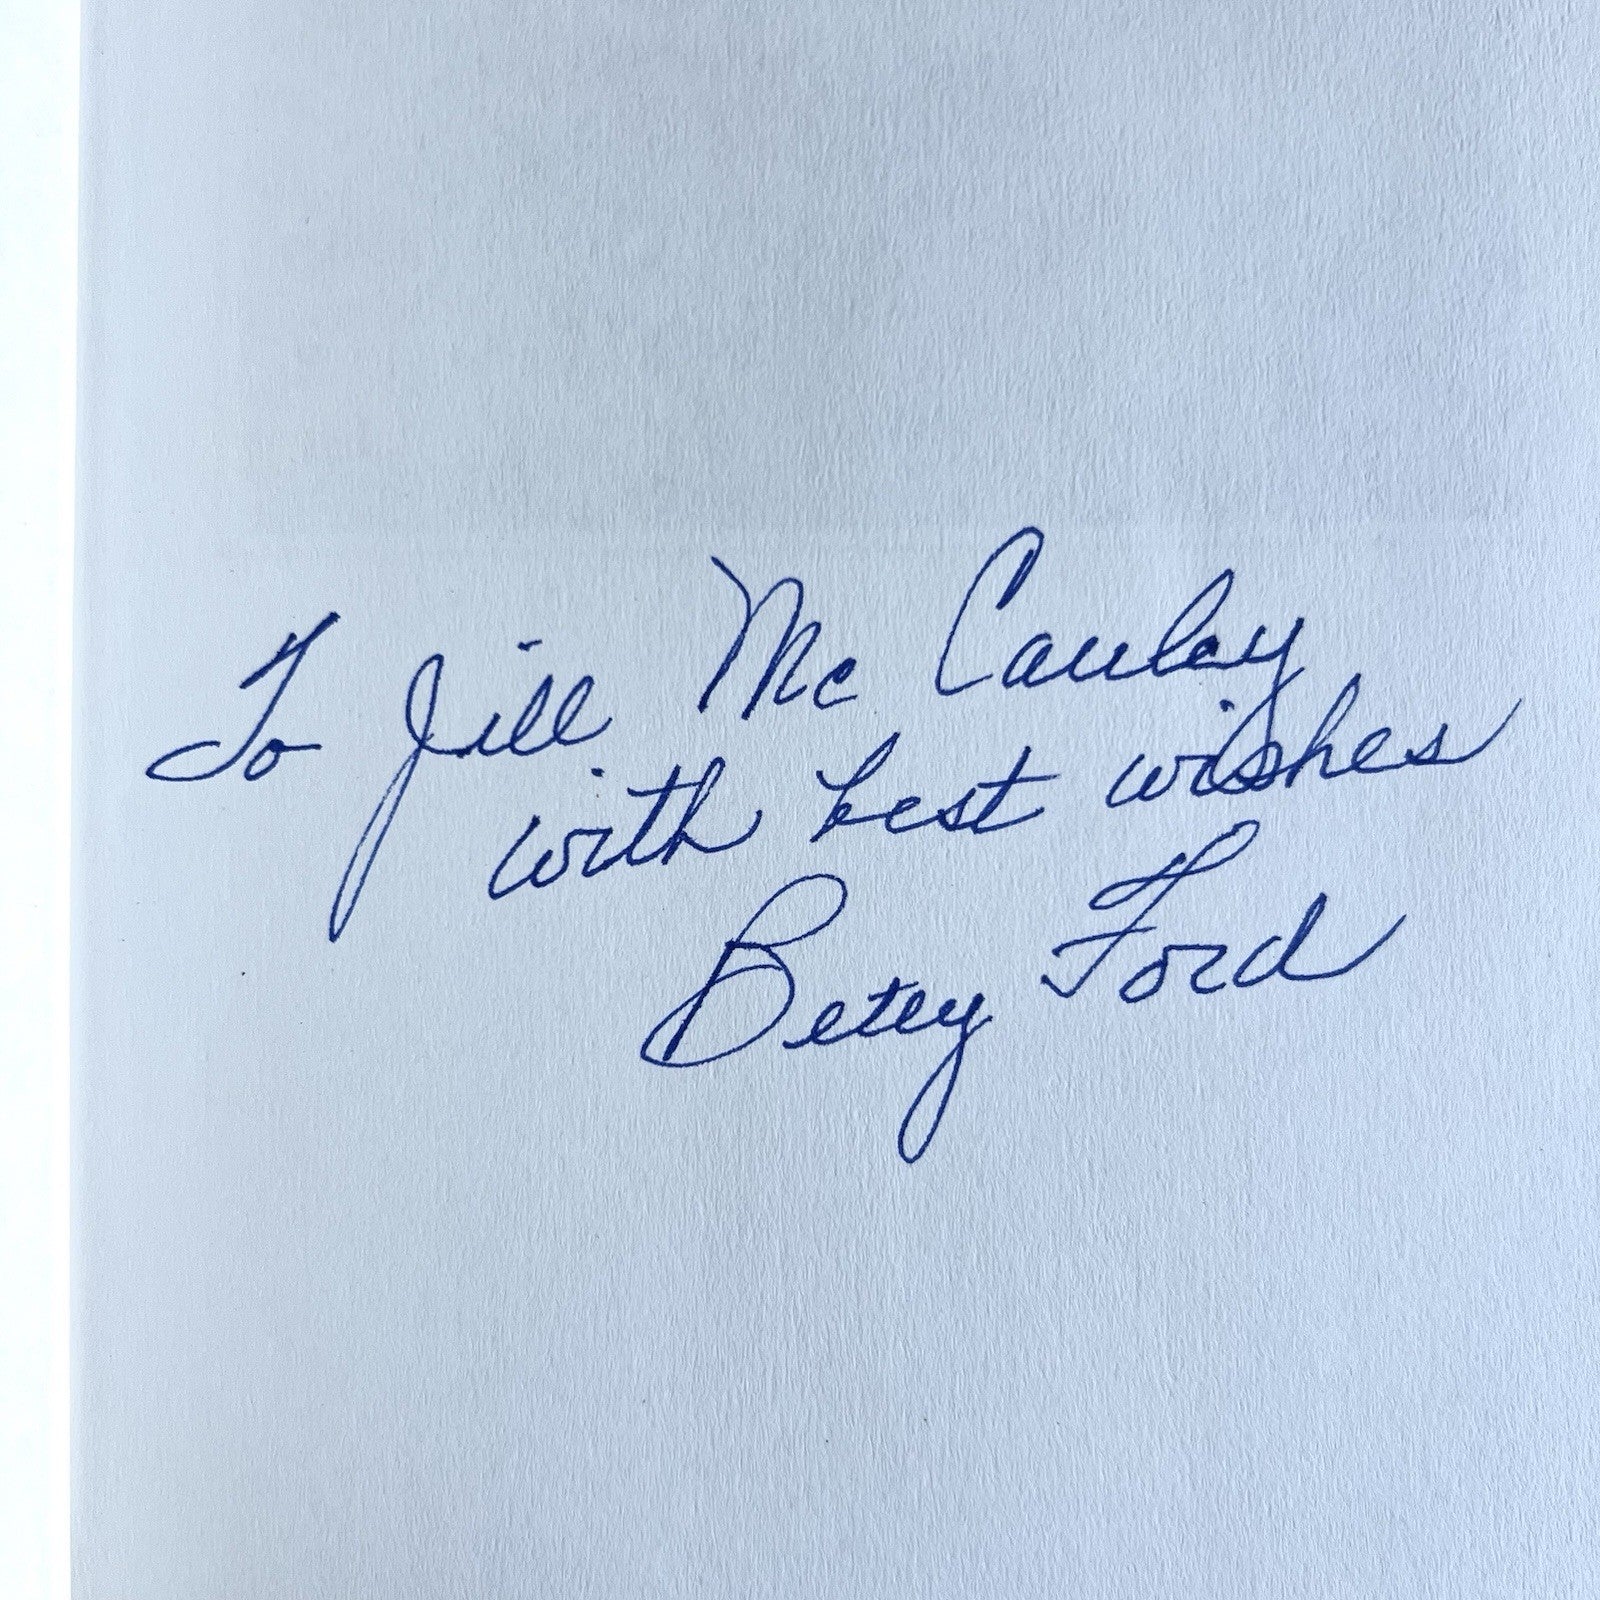 To Jill Mc Cauley
with best wishes
Betty Ford